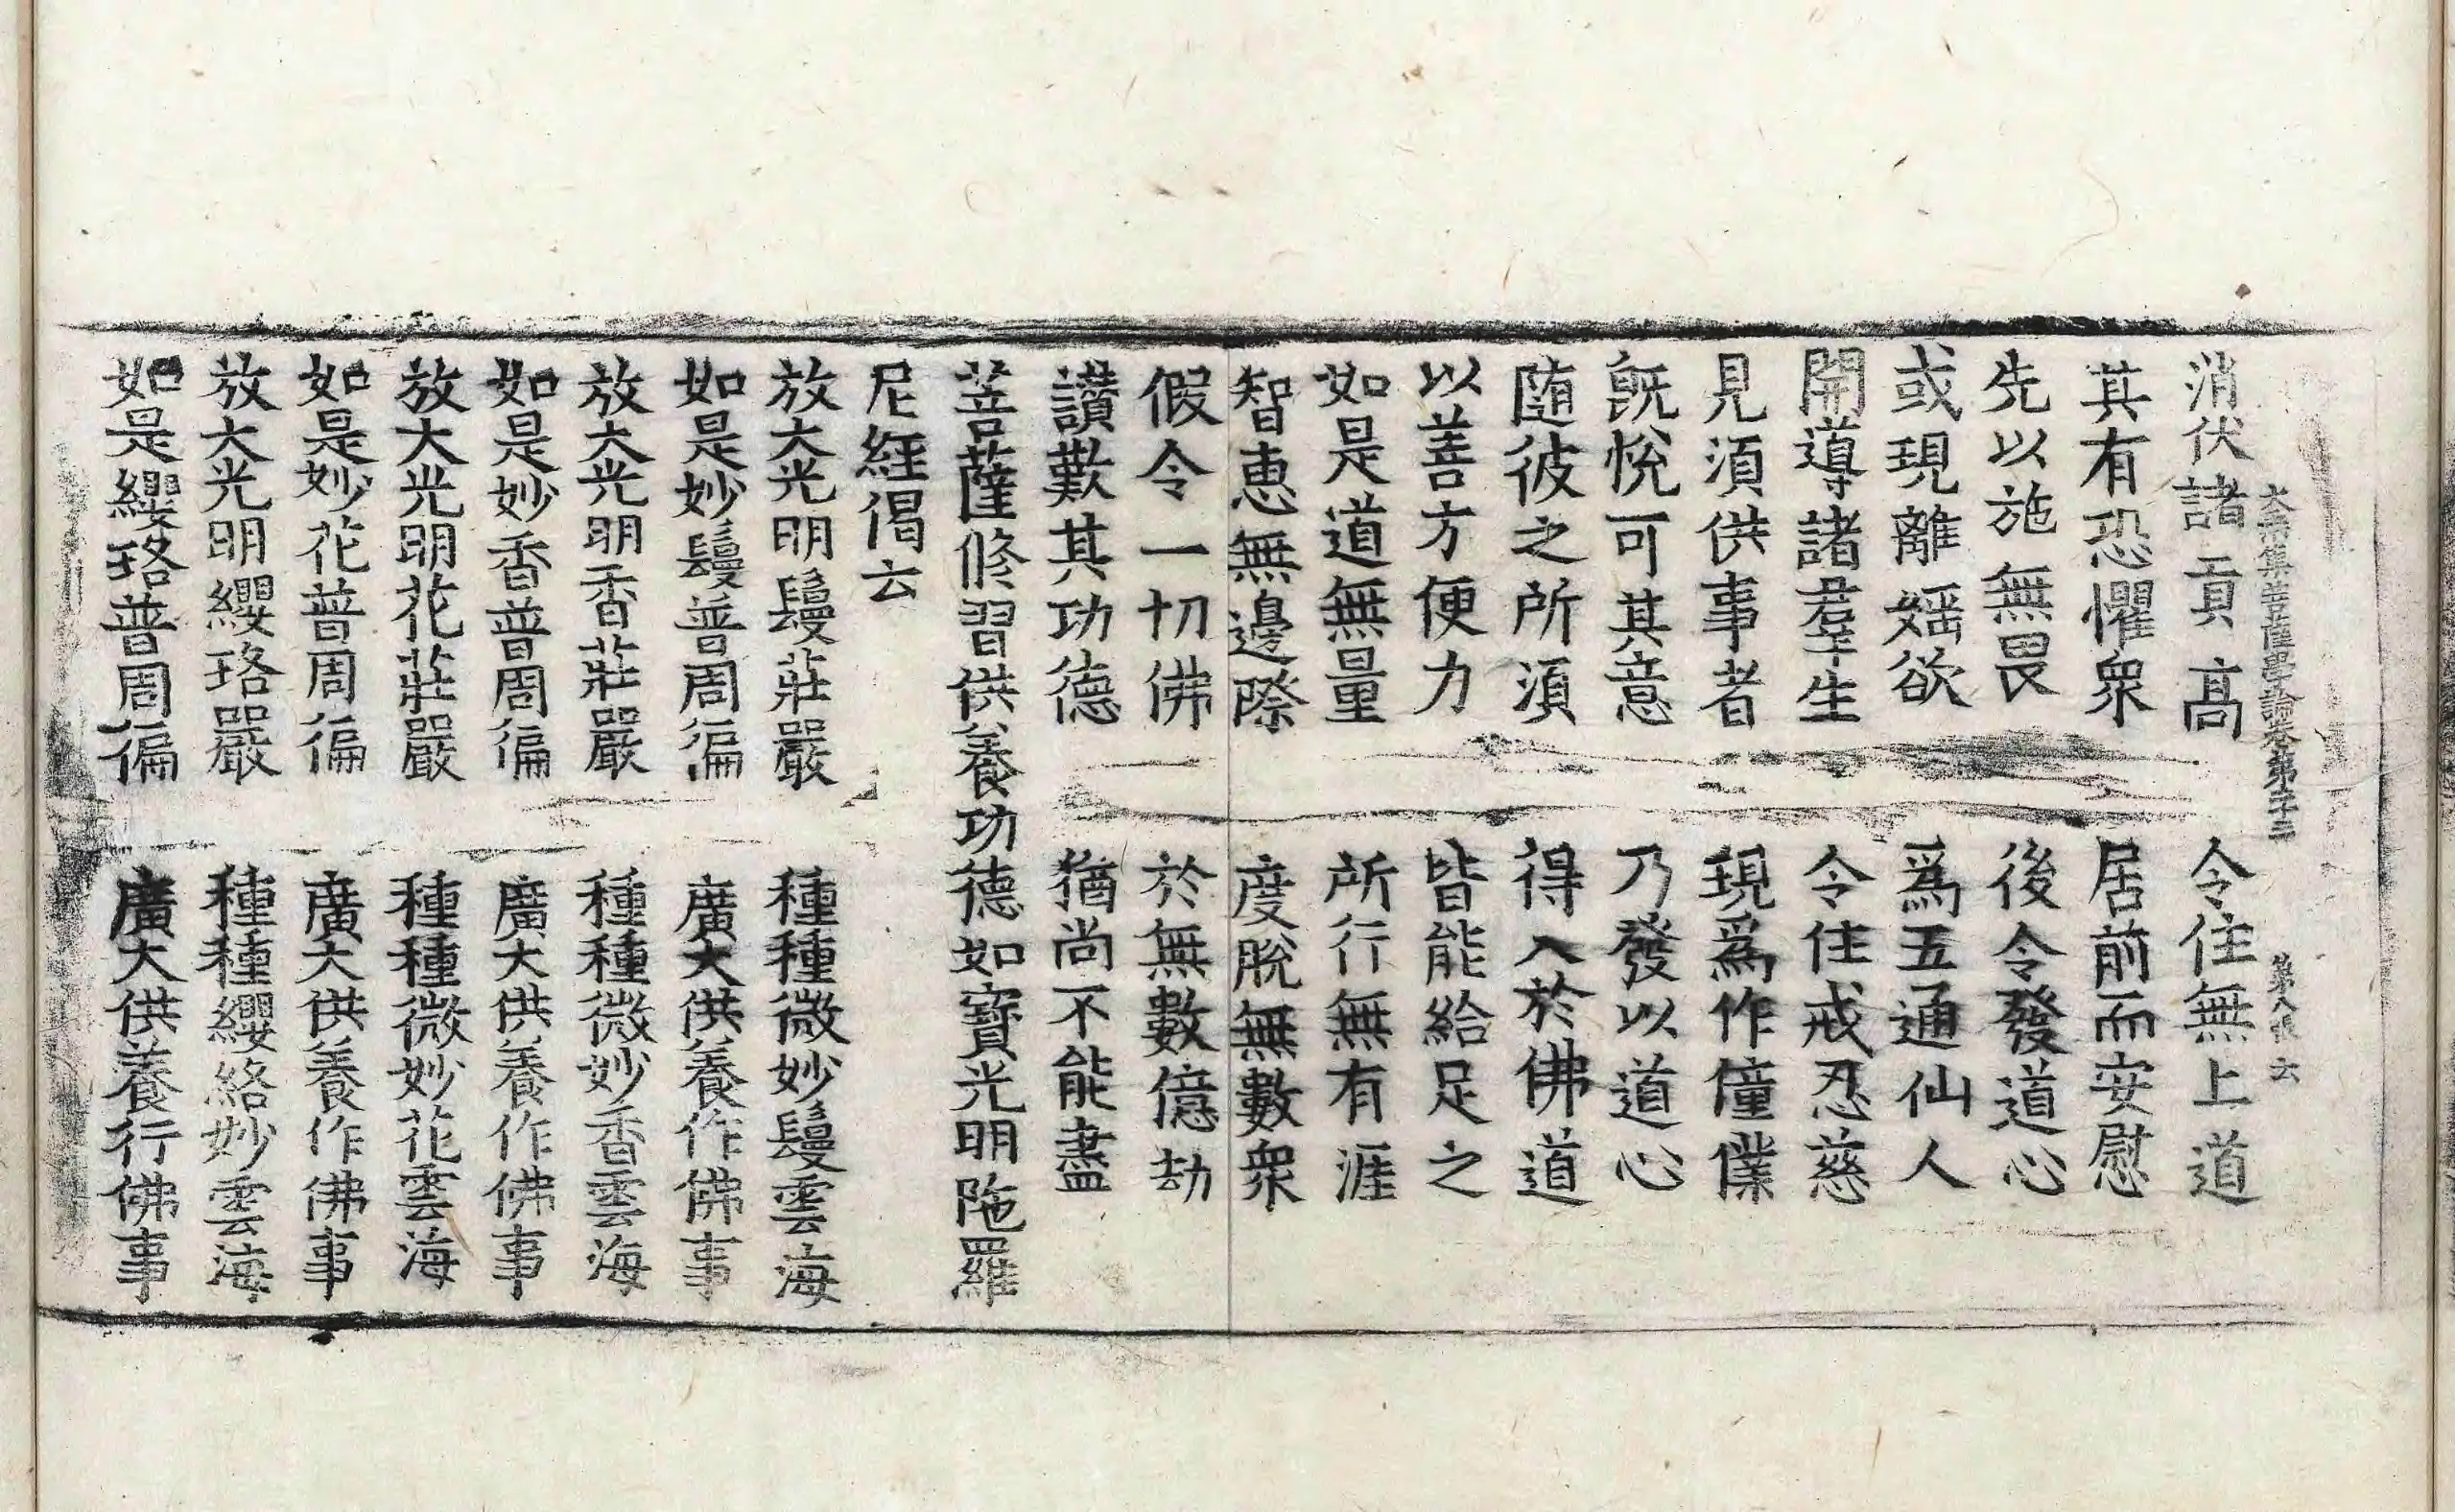 大乘集菩薩學論卷第二十三 第八張 云
消伏諸貢高 令住無上道
其有恐懼衆 居前而安慰
先以施無畏 後令發道心
或現離婬欲 爲五通仙人
開導諸羣生 令住戒忍慈
見須供事者 現爲作僮僕
旣悅可其意 乃發以道心
随彼之所須 得入於佛道
以善方便力 皆能給足之
如是道無量 所行無有涯
智恵無邊際 度脫無數衆
假令一切佛 於無數億劫
讃歎其功德 猶尚不能盡
菩薩修習供養功德如寶光明陁羅
尼經偈云
放大光明鬘莊嚴 種種微妙鬘雲海
如是妙鬘普周徧 廣大供養作佛事
放大光明香莊嚴 種種微妙香雲海
如是妙香普周徧 廣大供養作佛事
放大光明花莊嚴 種種微妙花雲海
如是妙花普周徧 廣大供養作佛事
放大光明纓珞嚴 種種纓絡妙雲海
如是纓珞普周徧 廣大供養行佛事